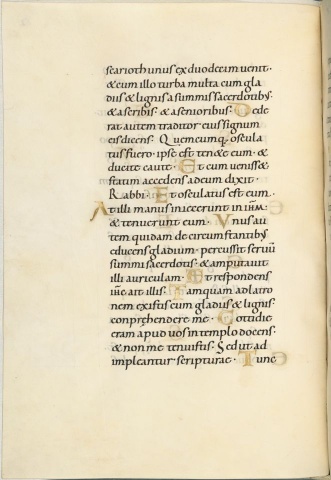 scarioth unus ex duodecim venit·
& cum illo turba multa cum gla
diis & lignis a summis sacerdotib;
& a scribis· & a senioribus· Dede
rat autem traditor eius signum
eis dicens· Quemcumq; oscula
tus fuero· ipse est ten&e eum· &
ducite caute· Et cum veniss&
statim accedens ad eum dixit·
Rabbi· Et osculatus est eum·
At illi manus iniecerunt in ihm̄·
& tenuerunt eum· Unus au
tem quidam de circumstantib;
educens gladium· percussit servū
summi sacerdotis· & amputavit
illi auriculam· Et respondens
ihc̄ ait illis· Tamquam ad latro
nem existis cum gladiis & lignis·
conprehendere me· Cottidie
eram apud vos in templo docens·
& non me tenuistis· Sed ut ad
impleantur scripturae· Tunc